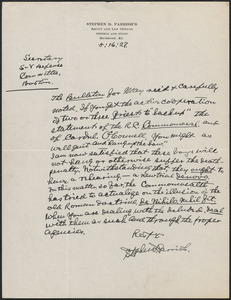 STEPHEN D. PARRISH'S
EQUITY AND LAW OFFICES
RICHMOND, KY.
5/16/27
Secretary
S-V Defense
Committee,
Boston.
The Bulletin for May rec'd & carefully
noted. If you get the active cooperation
of two or three priests to back up "the
statement of the R.C. Commonweal and
of Cardinal O'Connell you might as
well quit and hang up the
I am now satisfied that these boys will
not hang or otherwise suffer the death
penalty. Notwithstanding that they ought to
have a rehearing — a new trial de novo.
In this matter so far, the Commonwealth
has tried to actualize on the illusion of the
old Roman doctrine, De Nihilo Nihil fit.
When you are dealing with the deal
with them as such and through the proper
agencies.
Respy
Stephen D. Parrish.